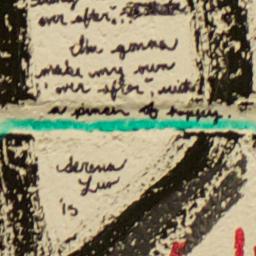 ever after",
I'm gonna
make my own
"ever after", with
a pinch of happy.
Serena
Luv
'15